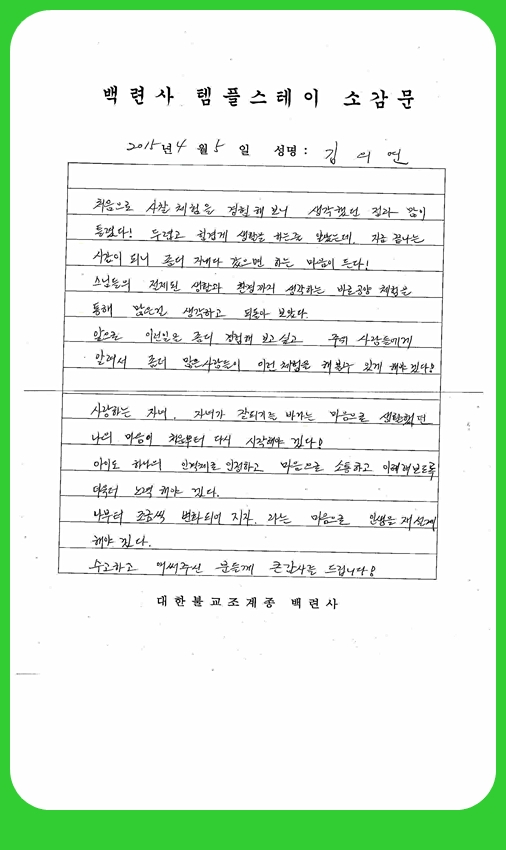 백련사 템플스테이 소감문
2015년 4 월 5 일 성명 : 김 의 연
처음으로 사찰체험을 경험해 보니 생각했던 것과 많이
틀렸다! 두렵고 힘겹게 생활을 하는줄 알았는데, 지금 끝나는
시간이 되니 좀더 지내다 갔으면 하는 마음이 든다!
스님들의 절제된 생활과 환경까지 생각하는 바로공양 체험을
통해 많은걸 생각하고 되돌아 보았다.
앞으로 이런일은 좀더 경험해 보고싶고 주위 사람들에게
알려서 좀더 많은사람들이 이런 체험을 해볼수 있게 해야겠다!
사랑하는 자녀. 자녀가 잘되기를 바라는 마음으로 생활했던
나의 마음이 처음부터 다시 시작해야 겠다!
아이도 하나의 인격체로 인정하고 마음으로 소통하고 이해해보도록
더욱더 노력 해야 겠다.
나부터 조금씩 변화되어 지자. 라는 마음으로 인생을 재설계
해야 겠다.
수고하고 애써주신 분들께 큰감사를 드립니다!
대한불교조계종 백련사